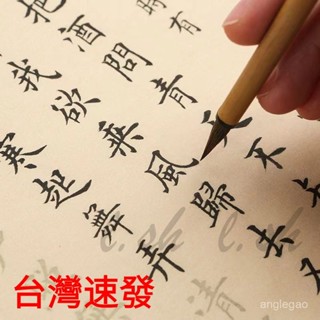 時有
把酒問青天不
我欲乘風歸去又
寒起舞弄清
台灣速發
anglegao